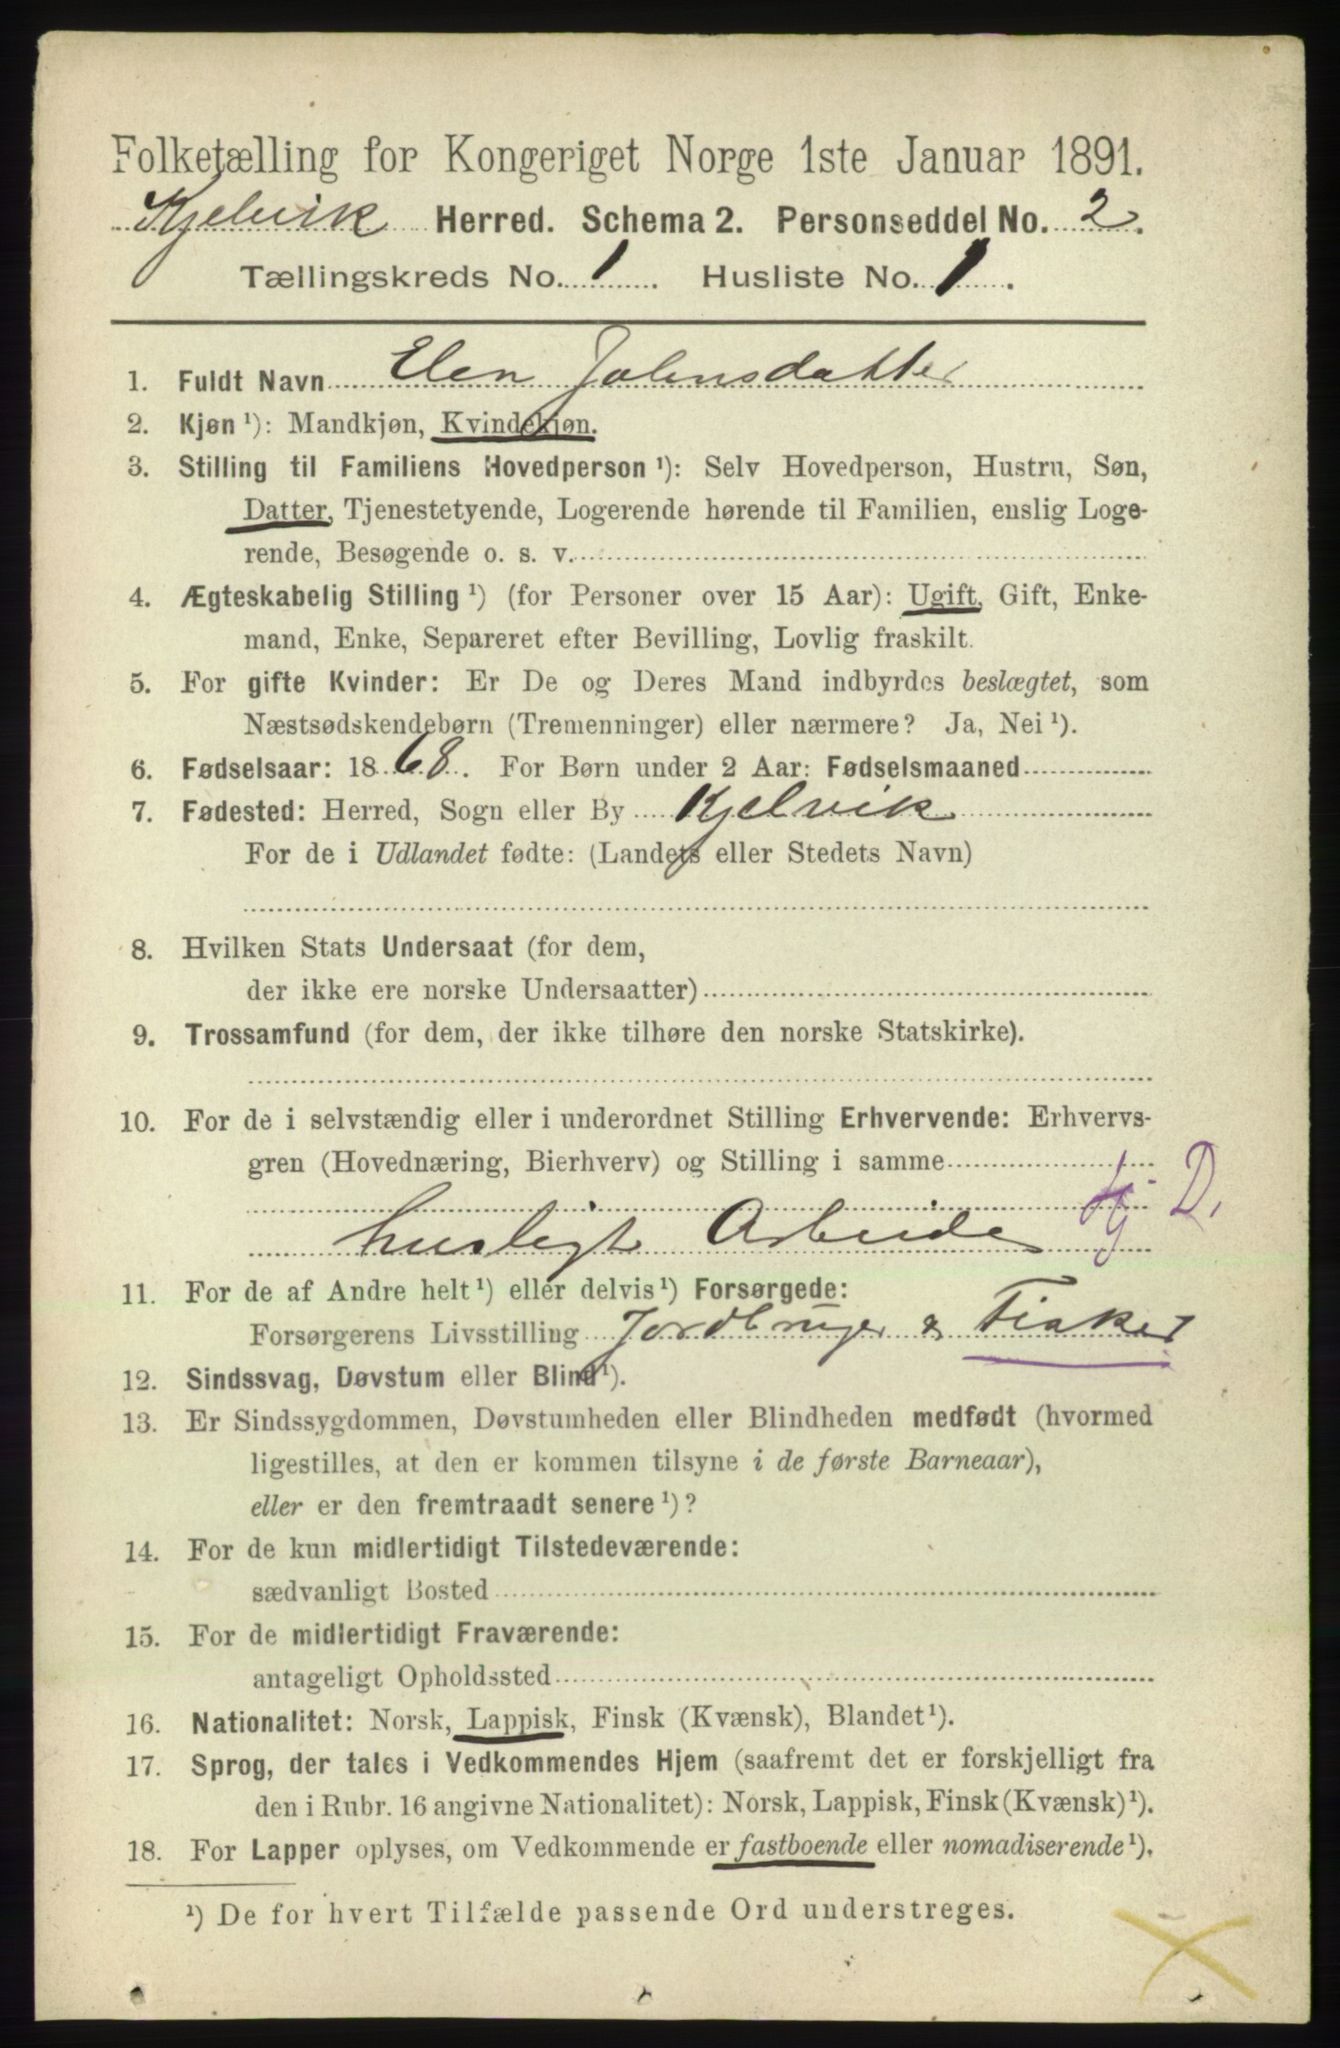 Folketælling for Kongeriget Norge 1ste Januar 1891.
Kjelvik Herred. Schema 2. Personseddel No. 2.
Tællingskreds No. 1. Husliste No. 1.
1. Fuldt Navn Elen Johnsdatter
2. Kjøn ¹): Mandkjøn, Kvindekjøn.
3. Stilling til Familiens Hovedperson ¹): Selv Hovedperson, Hustru, Søn,
Datter, Tjenestetyende, Logerende hørende til Familien, enslig Loge-
rende, Besøgende o. s. v.
4. Ægteskabelig Stilling ¹) (for Personer over 15 Aar): Ugift, Gift, Enke-
mand, Enke, Separeret efter Bevilling, Lovlig fraskilt.
5. For gifte Kvinder: Er De og Deres Mand indbyrdes beslægtet, som
Næstsødskendebørn (Tremenninger) eller nærmere? Ja, Nei ¹).
6. Fødselsaar: 1868. For Børn under 2 Aar: Fødselsmaaned
7. Fødested: Herred, Sogn eller By Kjelvik
For de i Udlandet fødte: (Landets eller Stedets Navn)
8. Hvilken Stats Undersaat (for dem,
der ikke ere norske Undersaatter)
9. Trossamfund (for dem, der ikke tilhøre den norske Statskirke).
10. For de i selvstændig eller i underordnet Stilling Erhvervende: Erhvervs-
gren (Hovednæring, Bierhverv) og Stilling i samme
D.
husligt Arbeide
11. For de af Andre helt ¹) eller delvis ¹) Forsørgede:
Forsørgerens Livsstilling Jordbruger & Fisker
12. Sindssvag, Døvstum eller Blind ¹).
13. Er Sindssygdommen, Døvstumheden eller Blindheden medfødt (hvormed
ligestilles, at den er kommen tilsyne i de første Barneaar),
eller er den fremtraadt senere ¹)?
14. For de kun midlertidigt Tilstedeværende:
sædvanligt Bosted
15. For de midlertidigt Fraværende:
antageligt Opholdssted
16. Nationalitet: Norsk, Lappisk, Finsk (Kvænsk), Blandet ¹).
17. Sprog, der tales i Vedkommendes Hjem (saafremt det er forskjelligt fra
den i Rubr. 16 angivne Nationalitet): Norsk, Lappisk, Finsk (Kvænsk) ¹).
18. For Lapper oplyses, om Vedkommende er fastboende eller nomadiserende ¹).
¹) De for hvert Tilfælde passende Ord understreges.